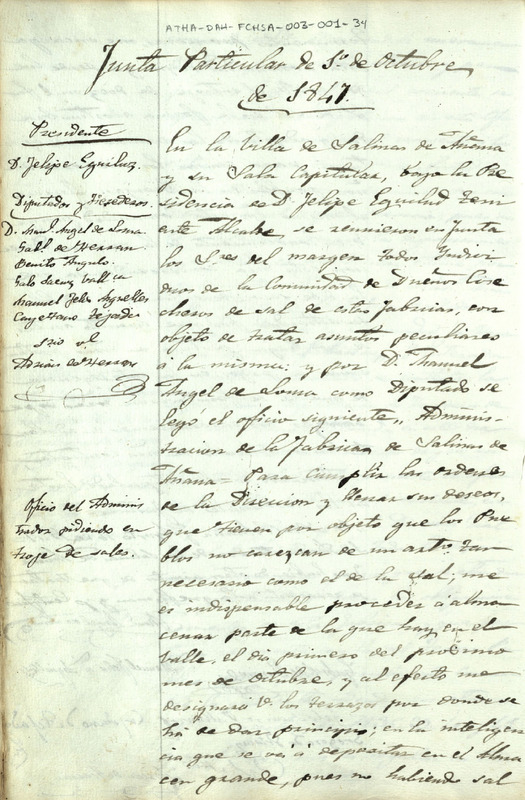 ATHA-DAH-FCHSA-003-001-34
Junta Particular de 1º de Octubre
de 1847.
Presidente
D. Felipe Eguiluz.
Diputados y Herederos.
D. Man.l Angel de Loma
Gab.l de Herran
Benito Angulo
Galo Saenz
Manuel Felix
Cayetano Tejada
Srio
Adrian de Herran
Oficio del Adminis
trador pidiendo en
troje de sales.
En la Villa de Salinas de Añana
y su Sala Capitular, bajo la Pre
sidencia de D. Felipe Eguiluz Teni
ente Alcalde, se reunieron en Junta
los S.res del margen todos Indivi
duos de la Comunidad de Dueños Cose
cheros de sal de estas Fabricas, con
objeto de tratar asuntos peculiares
a la misma: y por D. Manuel
Angel de Loma como Diputado se
leyó el oficio siguiente,, Adminis-
tracion de la Fabrica de Salinas de
Añana = Para cumplir las ordenes
de la Direccion y llenar sus deseos,
que tienen por objeto que los Pue
blos no carezcan de un art.º tan
necesario como el de la sal; me
es indispensable proceder á alma
cenar parte de la que hay en el
Valle, el dia primero del proximo
mes de Octubre, y al efecto me
designará V. los terrazos por donde se
há de dar principio; en la inteligen
cia que se vá á depositar en el Alma
cen grande, pues no habiendo sal